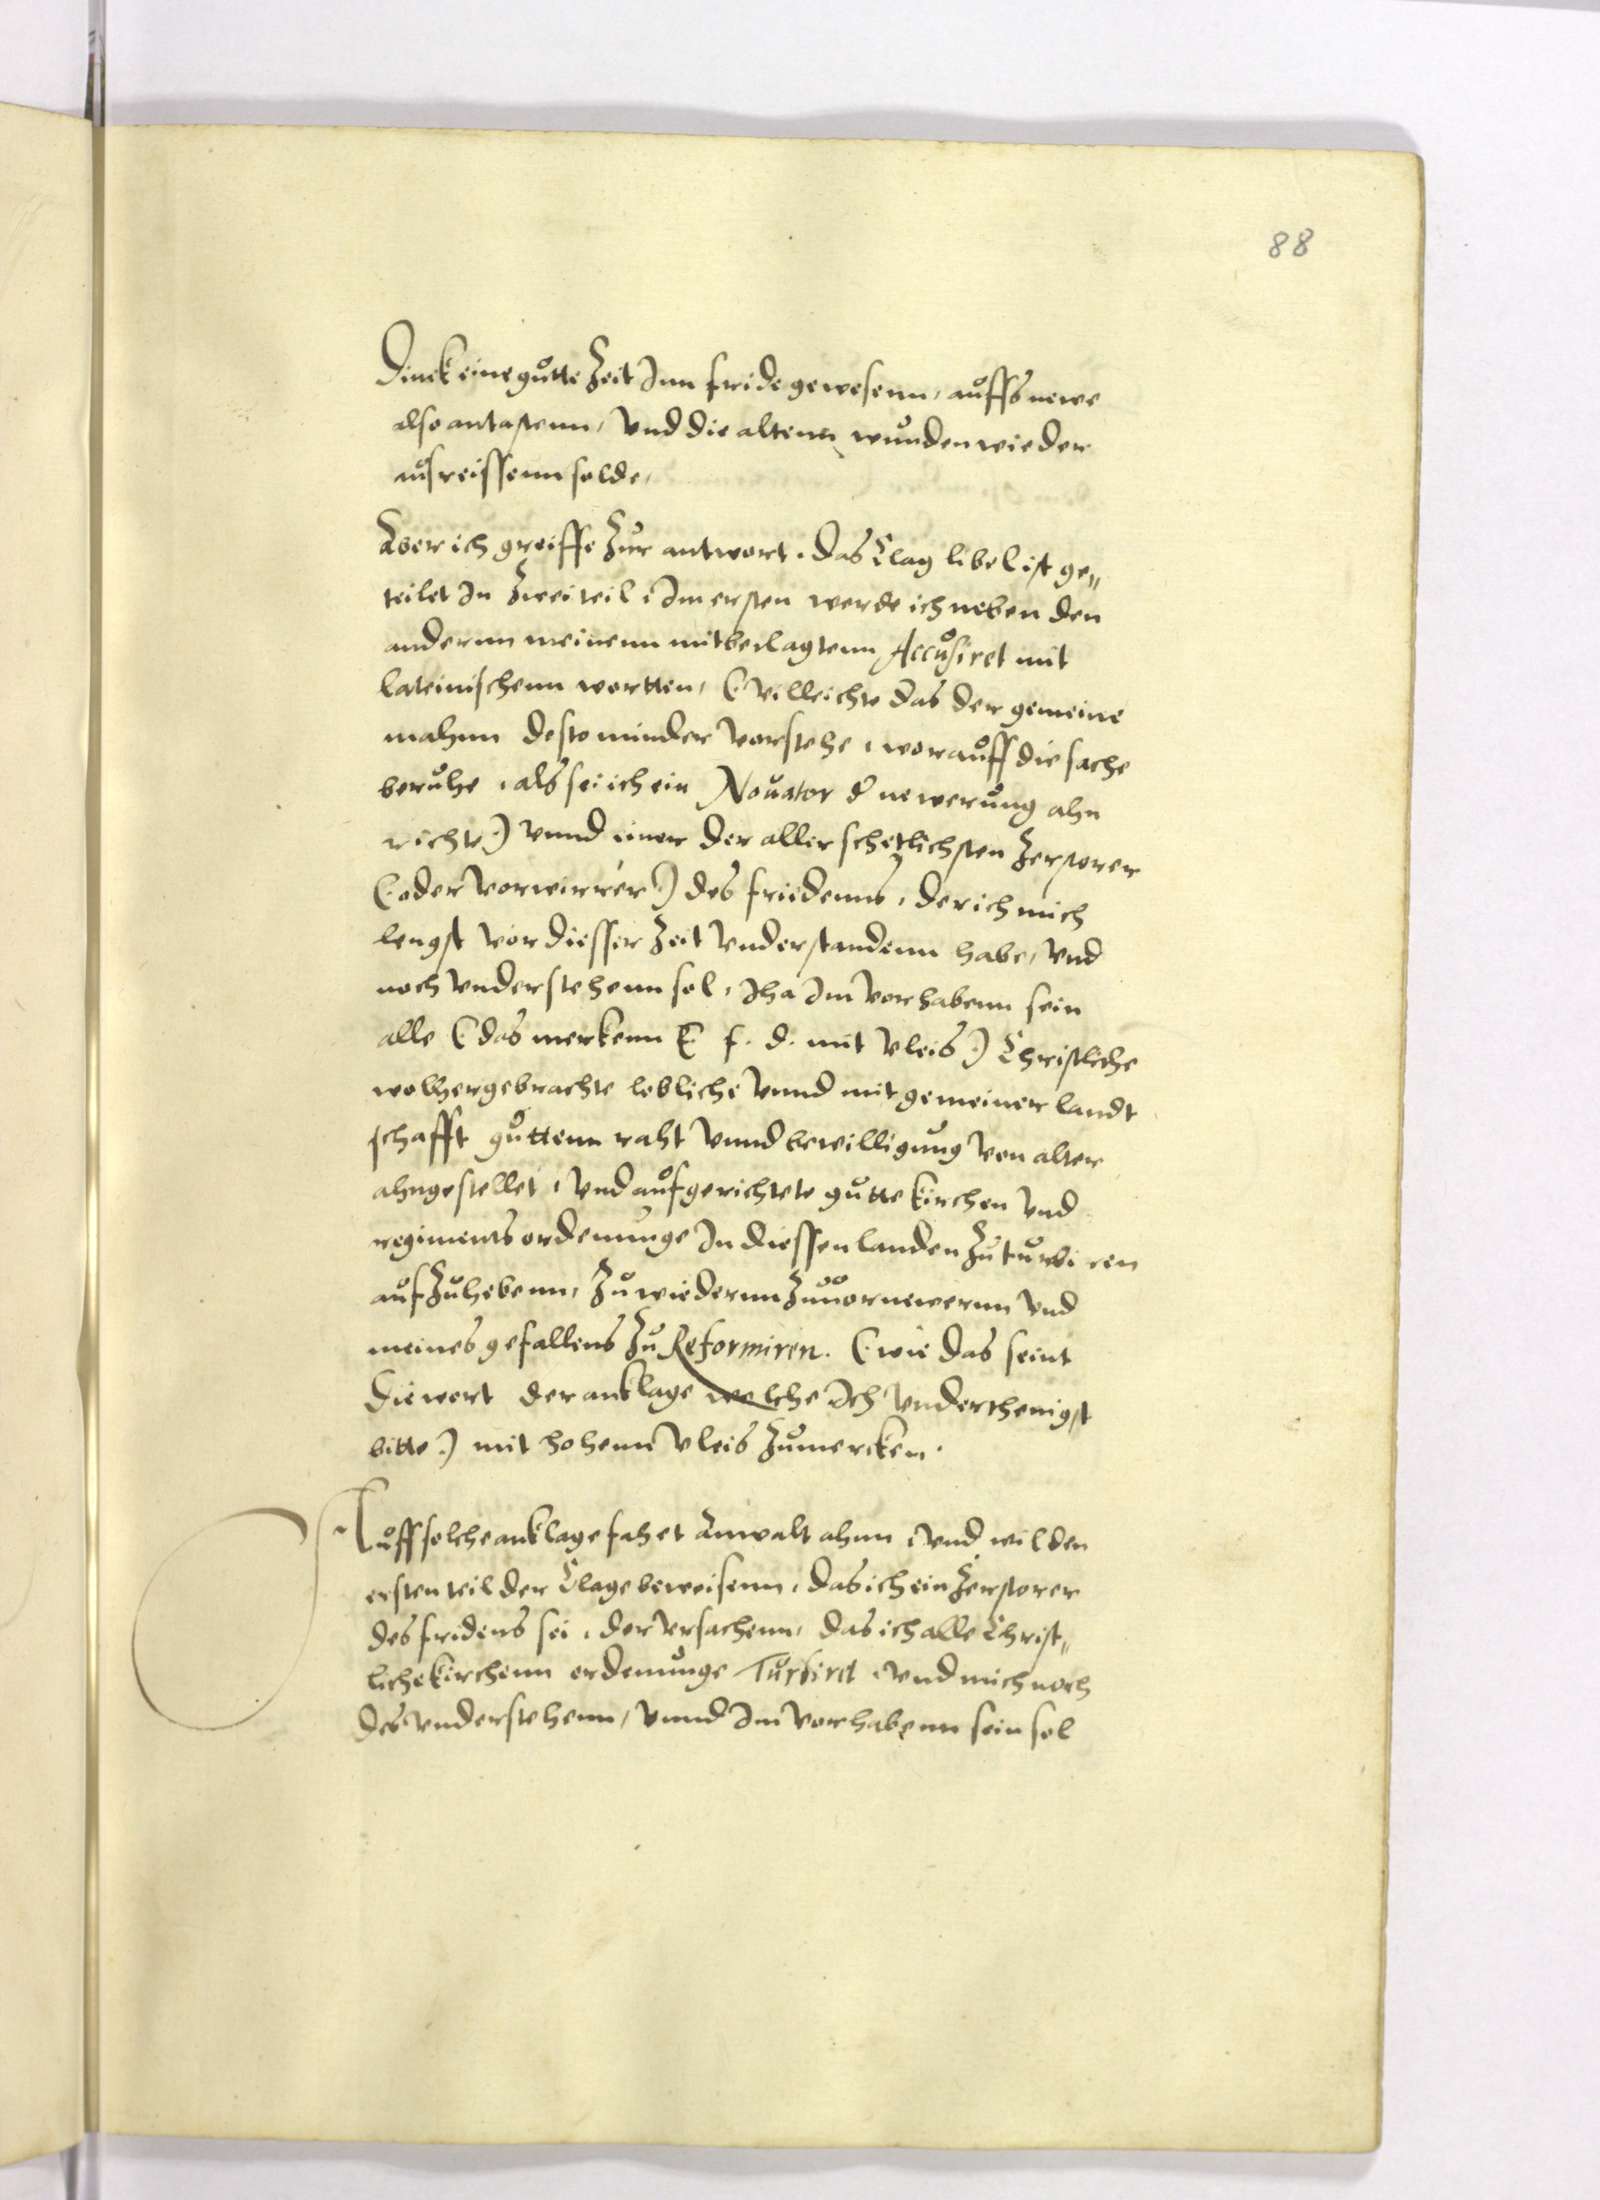 88
Dinck eine gutte Zeit Inn fride gewesenn, auffs newe
also antastenn, Vnd die altenn wunden wieder
aufreissenn solde,
Aber ich greiffe Zur antwort. Das Clag libel ist ge„
teilet In Zwei teil, Im ersten werde ich neben den
andernn meinenn mitbeclagtenn Accusiret mit
lateinischenn wortten, (: Villeichte das der gemeine
mahnn deste minder Vorstehe, worauff die sache
beruhe, als sei ich ein Nouator d newerung ahn
richte :) Vnnd einer der aller schetlichsten Zerstorer
(: oder Vorwirrer :) des friedenns, der ich mich
lengst vor diesser Zeit Vnderstandenn habe, Vnd
noch Vnderstehenn sol, Iha Im Vorhabenn sein
alle (: das merkenn E. f. d. mit Vleis :) Christliche
wolhergebrachte lobliche Vnnd mit gemeiner landt
schafft guttenn raht Vnnd bewilligung Von alter
ahngestellet, Vnd aufgerichtete gutte kirchen Vnd
regiments ordenunge In diessen landen Zu turbiren
auf Zuhebenn, Zu wiedernn Zuuornewernn Vnd
meines gefallens Zu Reformiren. (: wie das seint
die wort der anklage welche Ich Vnderthenigst
bitte :) mit hohenn Vleis Zumercken.
Auff solche anklage fahet Anwalt ahnn, Vnd wil den
ersten teil der Clage beweisenn, das ich ein Zerstorer
des fridens sei, der Vrsachenn, das ich alle Christ„
liche kirchenn ordenunge Turbiret, Vnd mich noch
des Vnderstehenn, Vnnd Im Vorhabenn sein sol